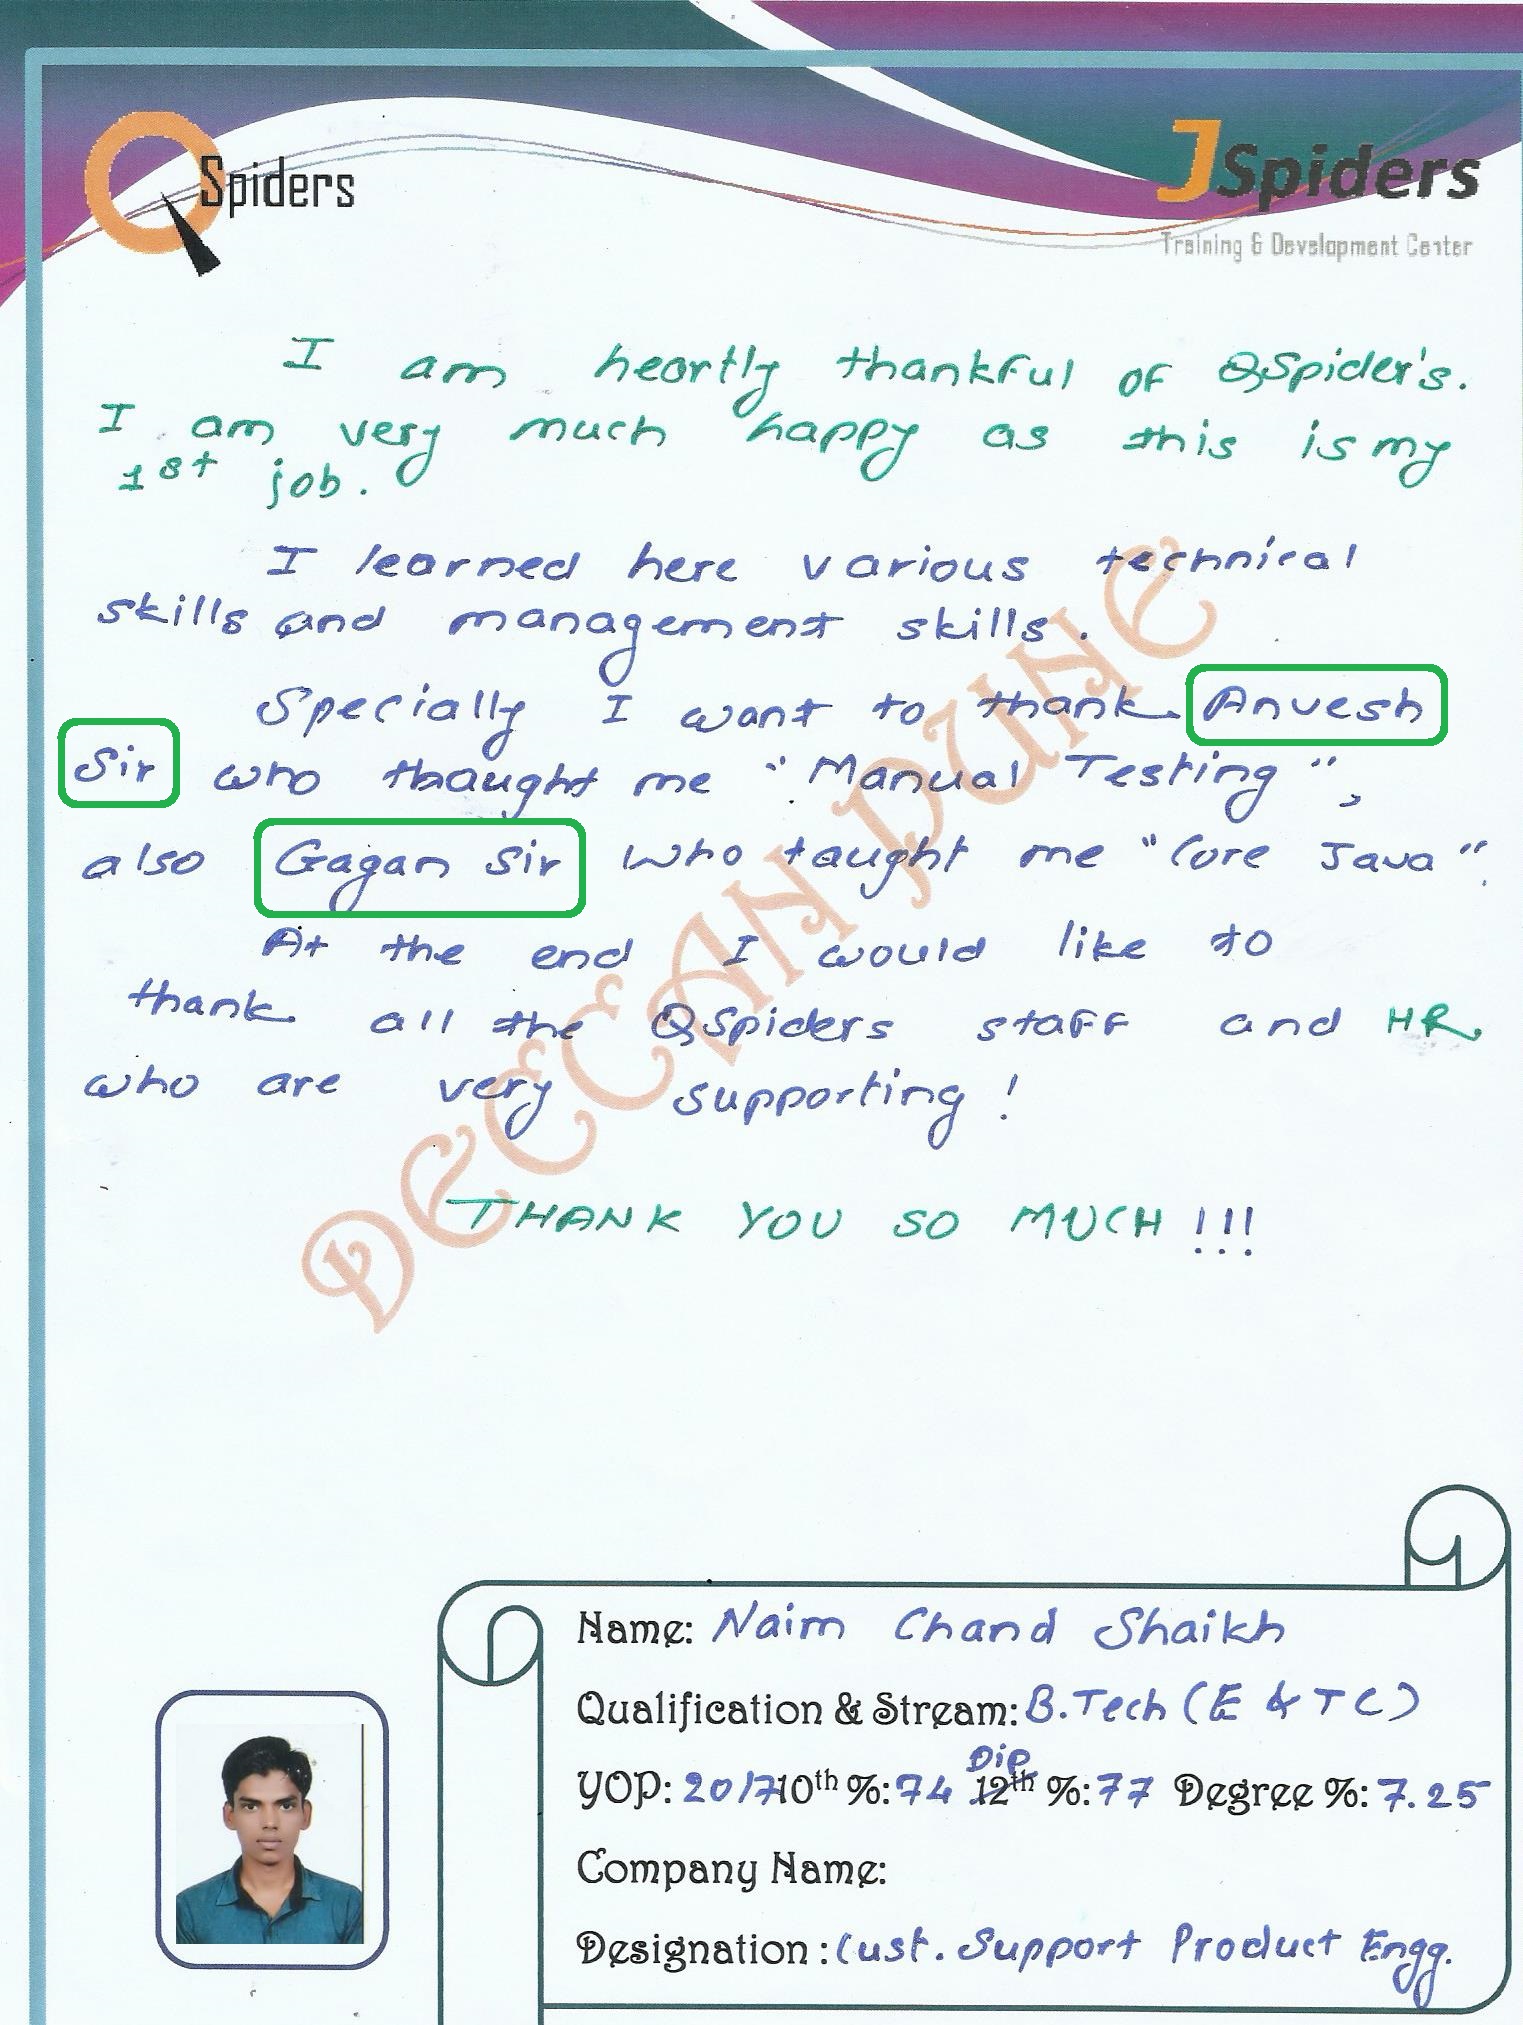 QSpiders
JSpiders
Training & Development Center
I am heartly thankful of QSpider's.
I am very much happy as this is my
1st job.
I learned here various technical
skills and management skills.
Specially I want to thank Anvesh
Sir who thaught me "Manual Testing",
also Gagan Sir who taught me "Core Java".
At the end I would like to
thank all the QSpiders staff and HR
who are very supporting!
THANK YOU SO MUCH !!!
DECCAN PUNE
Name: Naim Chand Shaikh
Qualification & Stream: B.Tech (E & TC)
Dip
YOP: 2017 10th %: 74 12th %: 77 Degree %: 7.25
Company Name:
Designation : Cust. Support Product Engg.